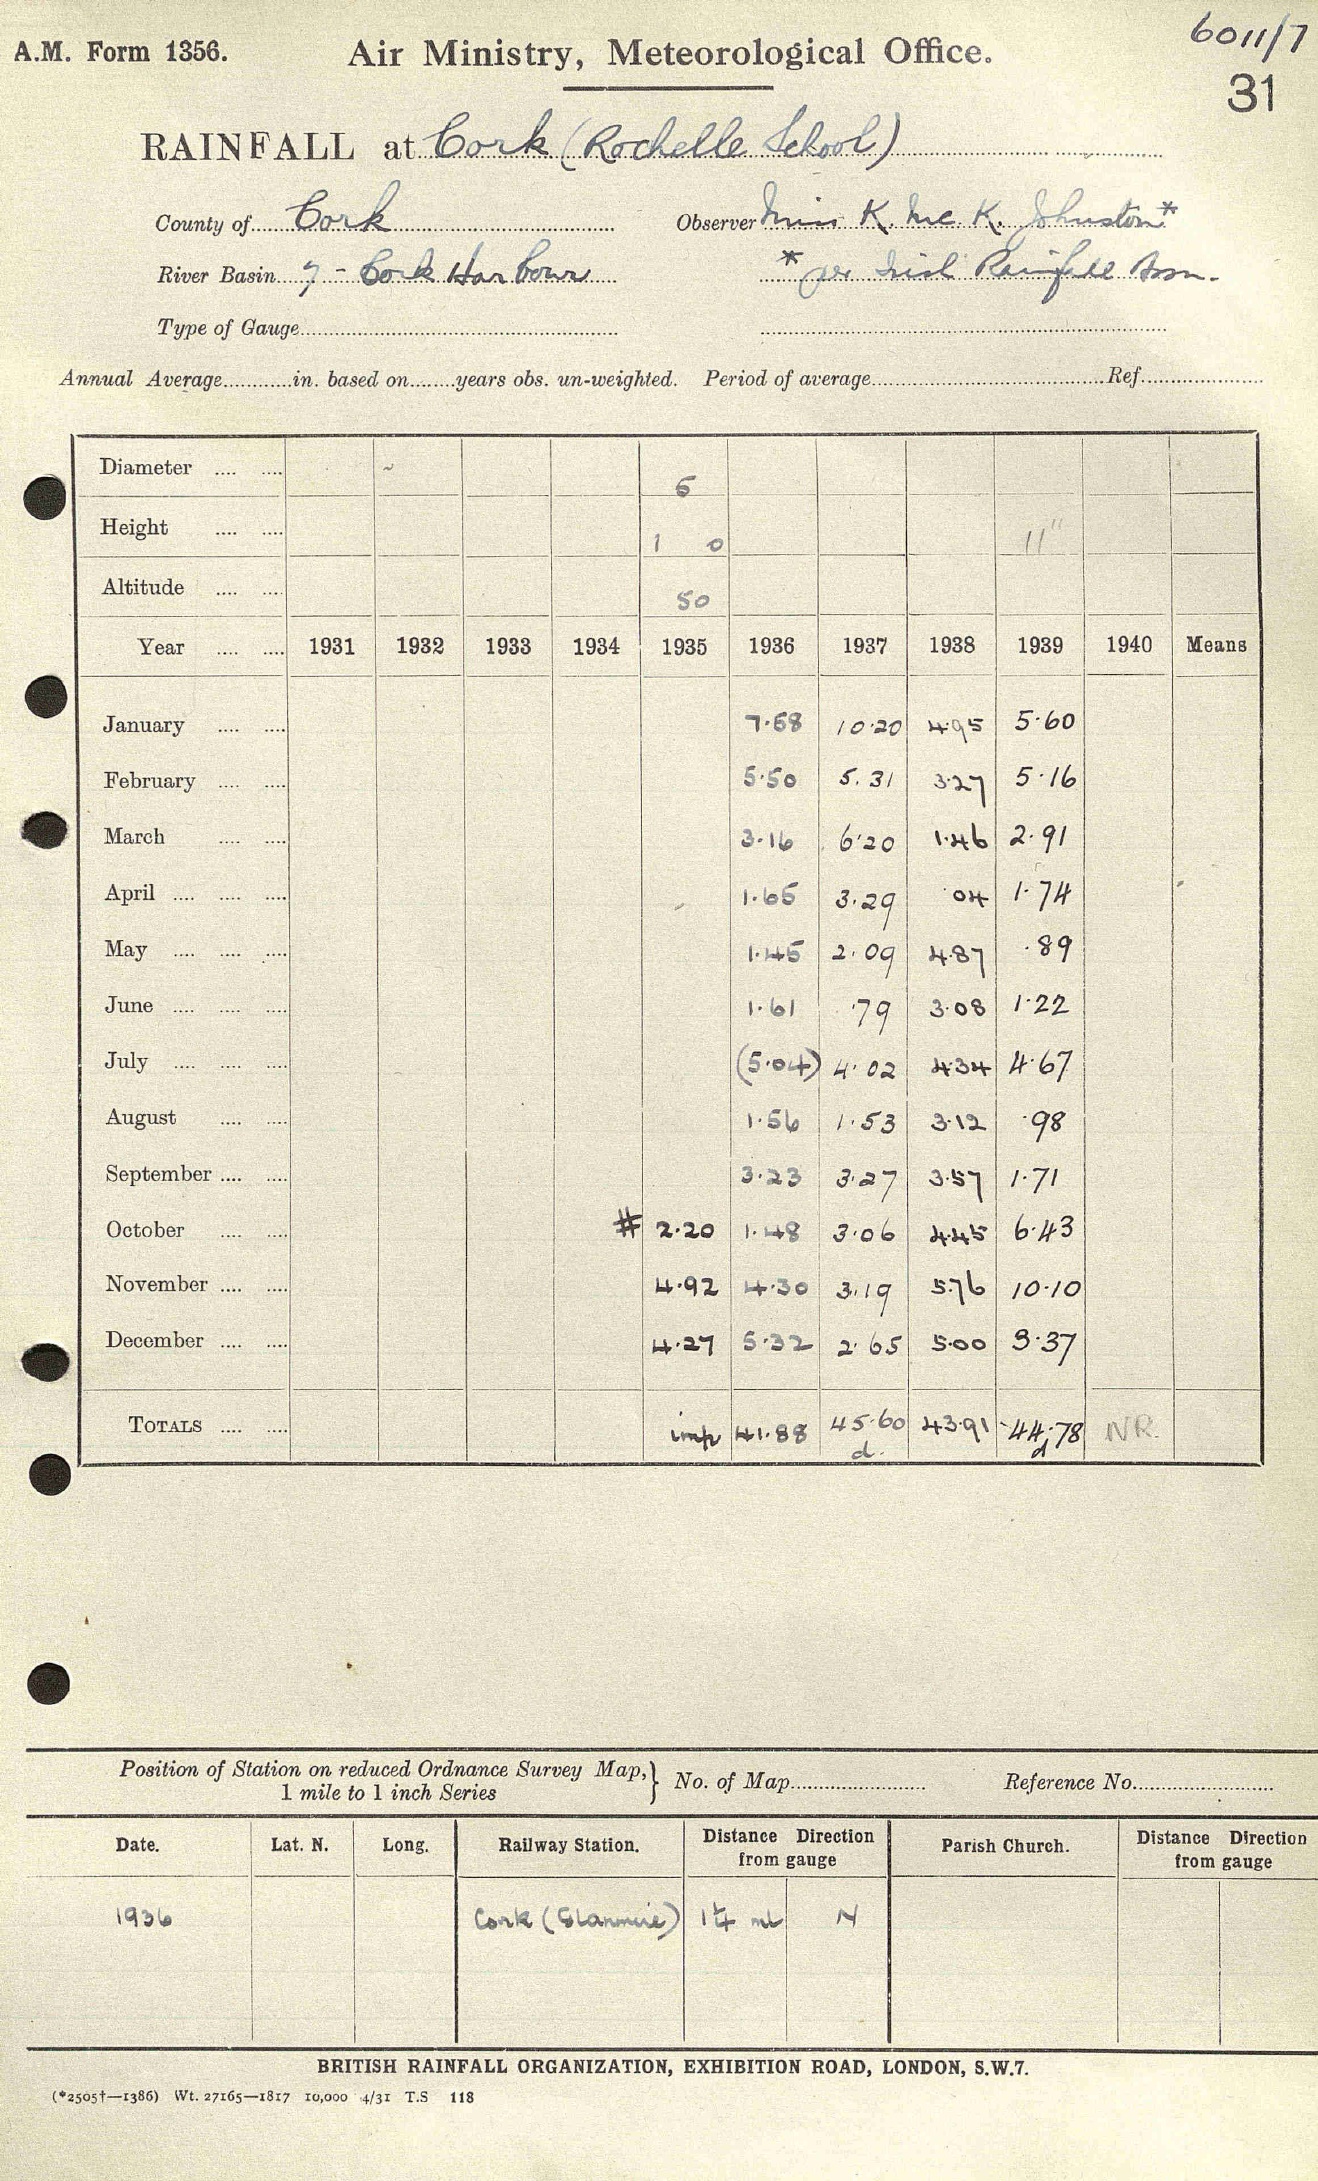 A.M. Form 1356. Air Ministry, Meteorological Office. 6011/7
31
RAINFALL at Cork (Rochelle School)
County of Cork Observer Miss K. Mc. K. Johnston*
River Basin 7 - Cork Harbour * per Irish Rainfall Assn.
Type of Gauge
Annual Average in. based on years obs. un-weighted. Period of average Ref
Diameter 5
Height 1 0 11"
Altitude 50
Year 1931 1932 1933 1934 1935 1936 1937 1938 1939 1940 Means
January 7.58 10.20 4.95 5.60
February 5.50 5.31 3.27 5.16
March 3.16 6.20 1.46 2.91
April 1.65 3.29 .04 1.74
May 1.45 2.09 4.87 .89
June 1.61 .79 3.08 1.22
July (5.04) 4.02 4.34 4.67
August 1.56 1.53 3.12 .98
September 3.23 3.27 3.57 1.71
October # 2.20 1.48 3.06 4.45 6.43
November 4.92 4.30 3.19 5.76 10.10
December 4.27 5.32 2.65 5.00 3.37
TOTALS imp 41.88 45.60 43.91 44.78 NR.
d. d
Position of Station on reduced Ordnance Survey Map, } No. of Map Reference No.
1 mile to 1 inch Series
Date. Lat. N. Long. Railway Station. Distance Direction from gauge Parish Church. Distance Direction from gauge
1936 Cork (Glanmire) 1¼ ml N
BRITISH RAINFALL ORGANIZATION, EXHIBITION ROAD, LONDON, S.W.7.
(*2505†—1386) Wt. 27165—1817 10,000 4/31 T.S 118